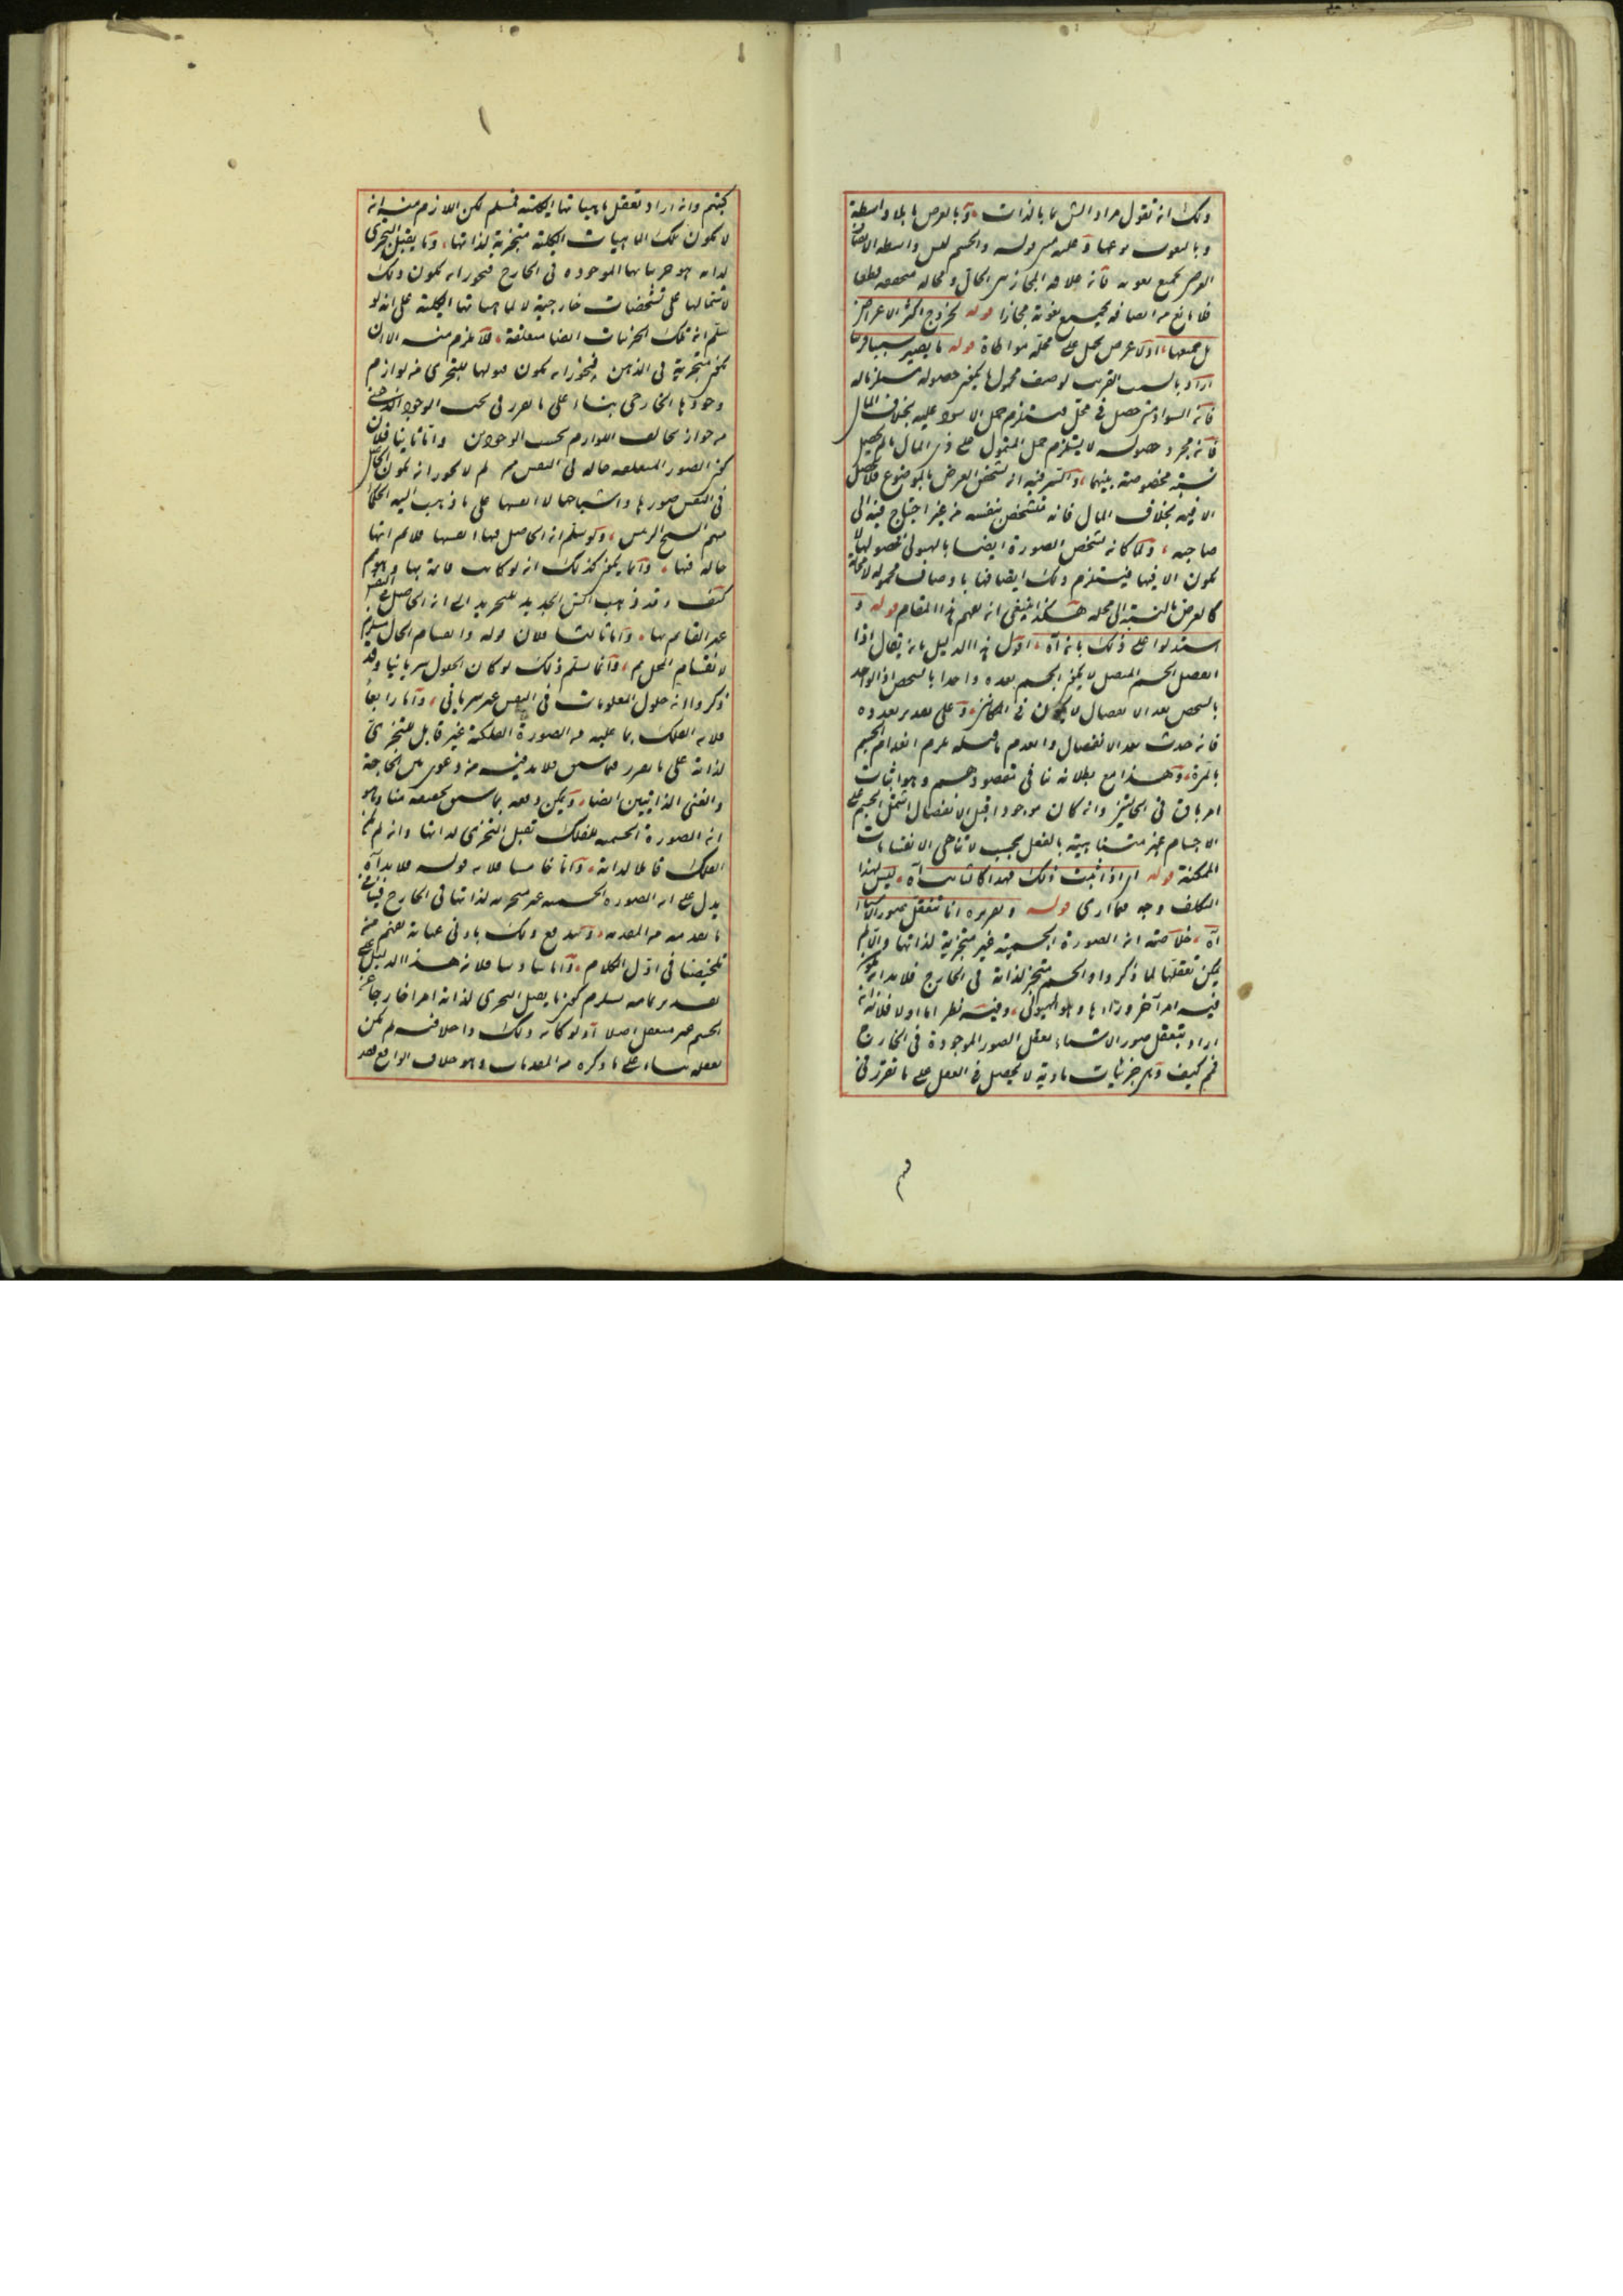 ولك ان تقول مراد الش ما بالذات وما بالعرض ما بلا واسطة
وبالنعوت نوعها وعليه قوله والجسم ليس واسطة
العرض بجميع نعوته فان علاقة المجاز بين الحال ومحاله متحققة قطعا
فلا مانع من اتصافه بجميع نعوته مجازا قوله لخروج اكثر الاعراض
بل جميعها اذ لا عرض يحمل على محله مواطاة قوله ما يصير سببا قريبا
اراد بالسبب القريب لوصف محمول ما يكون حصوله مستلزما له
فان السواد متى حصل في محل يستلزم حمل الاسود عليه بخلاف المال
فان مجرد حصوله لا يستلزم حمل المتمول على ذي المال ما لم يحصل
نسبة مخصوصة بينهما والسر فيه ان تشخص العرض بالموضوع فلا يحصل
الا فيه بخلاف المال فانه متشخص بنفسه من غير احتياج فيه الى
صاحبه ولما كان تشخص الصورة ايضا بالهيولى فحصولها لا
يكون الا فيها فيستلزم ذلك اتصافها باوصاف محمولة لا محالة
كالعرض بالنسبة الى محله هكذا ينبغي ان يفهم هذا المقام قوله و
استدلوا على ذلك بانه آه اقول هذا الدليل بانه يقال اذا
انفصل الجسم المتصل لا يكون الجسم بعده واحدا بالشخص اذ الواحد
بالشخص بعد الانفصال لا يكون في الحالين وعلى تقدير تعدده
فان حدث بعد الانفصال وانعدم ما قبله يلزم انعدام الجسم
بالمرة وهذا مع بطلانه نافى مقصودهم وهو اثبات
امر باق في الحالتين وان كان موجودا قبل الانفصال اشتمل الجسم على
الاجسام الغير متناهية بالفعل بحسب لا تناهي الانقسامات
الممكنة قوله اى اذا ثبت ذلك فهذا كالثابت آه ليس لهذا
التكلف وجه كما ترى قوله وتقريره انا نتعقل صور الاشياء
آه خلاصته ان الصورة الجسمية غير متجزية لذاتها والا لم
يكن تعقلها لما ذكروا والجسم متجز لذاته في الخارج فلا بد ان يكون
فيه امر آخر وراءها وهو الهيولى وفيه نظر اما اولا فلانه ان
اراد بتعقل صور الاشياء تعقل الصور الموجودة في الخارج
فمم كيف وهى جزئيات مادية لا تحصل في العقل على ما تقرر في
كتبهم وان اراد تعقل ماهياتها الكلية فمسلم لكن اللازم منه ان
لا يكون تلك الماهيات الكلية متجزية لذاتها وما يقبل التجزى
لذاته هو جزئياتها الموجودة في الخارج فيجوز ان يكون ذلك
لاشتمالها على تشخصات خارجية لا لماهياتها الكلية على انه لو
سلم ان تلك الجزئيات ايضا متعقلة فلا يلزم منه الا ان
يكون متجزية في الذهن فيجوز ان يكون قبولها للتجزى من لوازم
وجودها الخارجى بناء على ما تقرر في بحث الوجود الذهنى
من جواز تخالف اللوازم بحسب الوجودين واما ثانيا فلان
كون الصور المتعقلة حالة في النفس مم لم لا يجوز ان يكون الحاصل
في النفس صورها واشباحها لا انفسها على ما ذهب اليه الحكماء
منهم الشيخ الرئيس ولو سلم ان الحاصل فيها انفسها فلا نم انها
حالة فيها وانما يكون كذلك ان لو كانت قائمة بها وهو مم
كيف وقد ذهب الش الجديد للتجريد الى ان الحاصل في النفس
غير القائم بها واما ثالثا فلان قوله وانقسام الحال يستلزم
لانقسام المحل مم وانما يسلم ذلك لو كان الحلول سريانيا وقد
ذكروا ان حلول المعلومات في النفس غير سرياني واما رابعا
فلان الفلك بما عليه من الصورة الفلكية غير قابل للتجزى
لذاته على ما تقرر فيما سبق فلا بد فيه من دعوى بين الحاجة
والغنى الذاتيين ايضا ويمكن دفعه بما سبق تحقيقه منا وهو
ان الصورة الجسمية للفلك تقبل التجزى لذاتها وان لم يكن
الفلك قابلا لذاته واما خامسا فلان قوله فلا بد آه
يدل على ان الصورة الجسمية غير متجزية لذاتها في الخارج فينافى
ما بعد منه من المقدمة ويندفع ذلك بادنى عناية تفهم من
تلخيصنا في اول الكلام واما سادسا فلان هذا الدليل على
تقدير تمامه يستلزم كون ما يقبل التجزى لذاته امرا خارجا عن
الجسم غير متعقل اصلا ولو كان ذلك داخلا فيه لم يمكن
تعقله بناء على ما ذكره من المقدمات وهو خلاف الواقع فقد
فهم